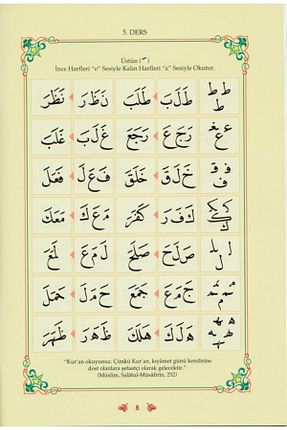 5. DERS
Üstün (ـَ)
İnce Harfleri "e" Sesiyle Kalın Harfleri "a" Sesiyle Okutur.
ط ط ط طَ لَ بَ طَلَبَ نَ ظَ رَ نَظَرَ
ع ع غ رَ جَ عَ رَجَعَ غَ لَ بَ غَلَبَ
ف ق ف خَ لَ قَ خَلَقَ فَ عَ لَ فَعَلَ
ك ك ك كَ فَ رَ كَفَرَ مَ عَ كَ مَعَكَ
ل ل ل صَ لَ حَ صَلَحَ لَ مَ عَ لَمَعَ
م م م جَ مَ عَ جَمَعَ حَ مَ لَ حَمَلَ
ه ه ه ه هَ لَ كَ هَلَكَ ظَ هَ رَ ظَهَرَ
"Kur'an okuyunuz. Çünkü Kur'an, kıyâmet günü kendisine
dost olanlara şefaatçi olarak gelecektir."
(Müslim, Salâtü'l-Müsâfirîn, 252)
8